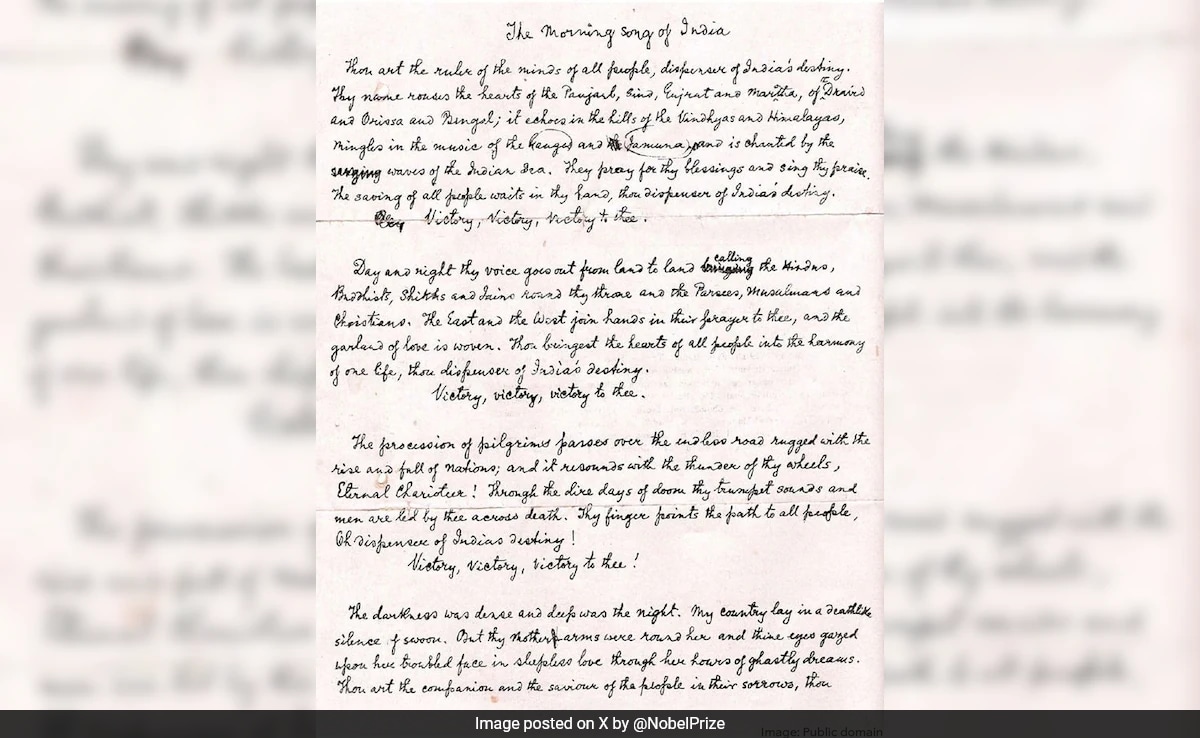 The Morning song of India
Thou art the ruler of the minds of all people, dispenser of India's destiny.
Thy name rouses the hearts of the Panjaub, Sind, Gujrat and Maratta, of Dravid
and Orissa and Bengal; it echoes in the hills of the Vindhyas and Himalayas,
mingles in the music of the Ganges and Jamuna, and is chanted by the
surging waves of the Indian Sea. They pray for thy blessings and sing thy praise.
The saving of all people waits in thy hand, thou dispenser of India's destiny.
Victory, Victory, Victory to thee.
Day and night thy voice goes out from land to land calling the Hindus,
Buddhists, Shikhs and Jains round thy throne and the Parsees, Musulmans and
Christians. The East and the West join hands in their prayer to thee, and the
garland of love is woven. Thou bringest the hearts of all people into the harmony
of one life, thou dispenser of India's destiny.
Victory, victory, victory to thee.
The procession of pilgrims passes over the endless road rugged with the
rise and fall of nations; and it resounds with the thunder of thy wheels,
Eternal Charioteer! Through the dire days of doom thy trumpet sounds and
men are led by thee across death. Thy finger points the path to all people,
Oh dispenser of India's destiny!
Victory, Victory, Victory to thee!
The darkness was dense and deep was the night. My country lay in a deathlike
silence of swoon. But thy mother arms were round her and thine eyes gazed
upon her troubled face in sleepless love through her hours of ghastly dreams.
Thou art the companion and the saviour of the people in their sorrows, thou
Image posted on X by @NobelPrize
Image: Public domain